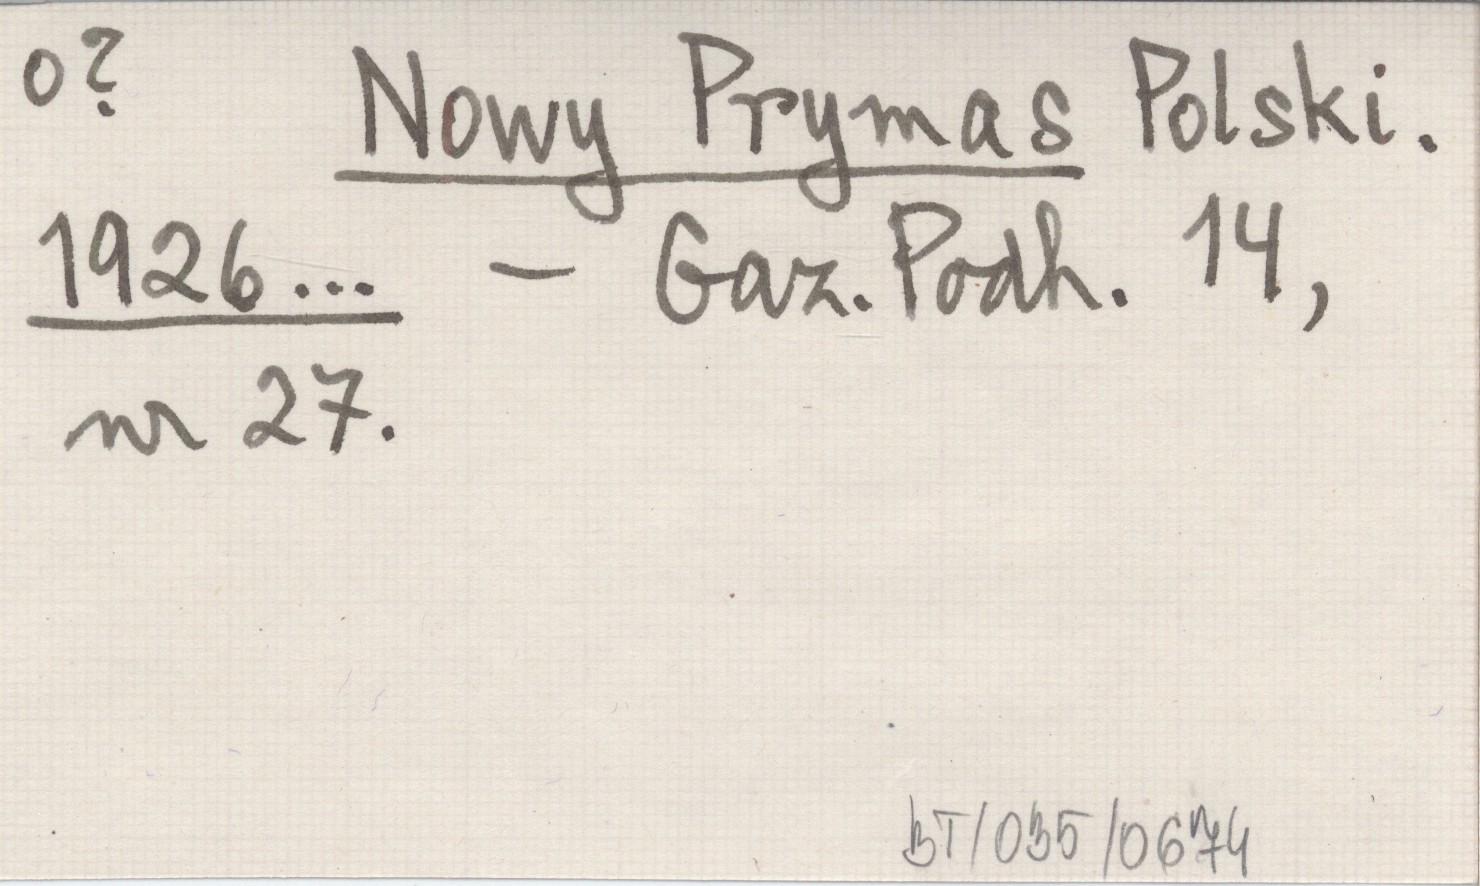 o? Nowy Prymas Polski.
1926... – Gaz. Podh. 14,
nr 27.
BT/035/0674